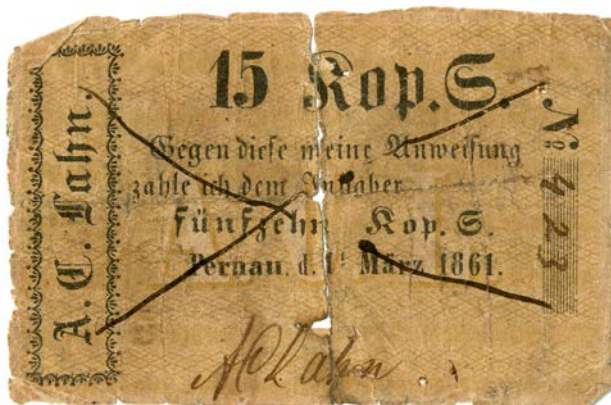 A. C. Lahn.
15 Kop. S.
Gegen diese meine Anweisung
zahle ich dem Inhaber
fünfzehn Kop. S.
Pernau, d. 1t März 1861.
No: 423
A C Lahn